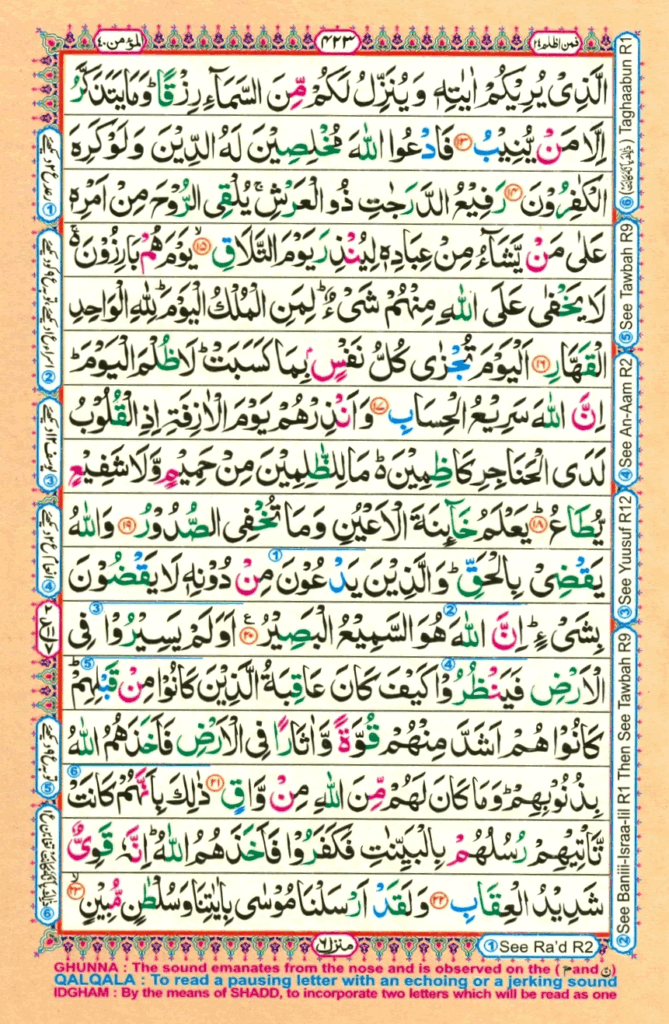 فمن اظلم ٢٤
٤٢٣
المؤمن ٤٠
الَّذِیْ یُرِیْكُمْ اٰیٰتِهٖ وَ یُنَزِّلُ لَكُمْ مِّنَ السَّمَآءِ رِزْقًاؕ وَ مَا یَتَذَكَّرُ
اِلَّا مَنْ یُّنِیْبُ ۝۱۳ فَادْعُوا اللّٰهَ مُخْلِصِیْنَ لَهُ الدِّیْنَ وَ لَوْ كَرِهَ
الْكٰفِرُوْنَ ۝۱۴ رَفِیْعُ الدَّرَجٰتِ ذُو الْعَرْشِۚ یُلْقِی الرُّوْحَ مِنْ اَمْرِهٖ
عَلٰی مَنْ یَّشَآءُ مِنْ عِبَادِهٖ لِیُنْذِرَ یَوْمَ التَّلَاقِ ۝۱۵ یَوْمَ هُمْ بٰرِزُوْنَ۬ۚ
لَا یَخْفٰی عَلَی اللّٰهِ مِنْهُمْ شَیْءٌؕ لِمَنِ الْمُلْكُ الْیَوْمَؕ لِلّٰهِ الْوَاحِدِ
الْقَهَّارِ ۝۱۶ اَلْیَوْمَ تُجْزٰی كُلُّ نَفْسٍۭ بِمَا كَسَبَتْؕ لَا ظُلْمَ الْیَوْمَؕ
اِنَّ اللّٰهَ سَرِیْعُ الْحِسَابِ ۝۱۷ وَ اَنْذِرْهُمْ یَوْمَ الْاٰزِفَةِ اِذِ الْقُلُوْبُ
لَدَی الْحَنَاجِرِ كٰظِمِیْنَ۬ؕ مَا لِلظّٰلِمِیْنَ مِنْ حَمِیْمٍ وَّ لَا شَفِیْعٍ
یُّطَاعُؕ ۝۱۸ یَعْلَمُ خَآىِٕنَةَ الْاَعْیُنِ وَ مَا تُخْفِی الصُّدُوْرُ ۝۱۹ وَ اللّٰهُ
یَقْضِیْ بِالْحَقِّؕ وَ الَّذِیْنَ یَدْعُوْنَ مِنْ دُوْنِهٖ لَا یَقْضُوْنَ
بِشَیْءٍؕ اِنَّ اللّٰهَ هُوَ السَّمِیْعُ الْبَصِیْرُ ۝۲۰ اَوَ لَمْ یَسِیْرُوْا فِی
الْاَرْضِ فَیَنْظُرُوْا كَیْفَ كَانَ عَاقِبَةُ الَّذِیْنَ كَانُوْا مِنْ قَبْلِهِمْؕ
كَانُوْا هُمْ اَشَدَّ مِنْهُمْ قُوَّةً وَّ اٰثَارًا فِی الْاَرْضِ فَاَخَذَهُمُ اللّٰهُ
بِذُنُوْبِهِمْؕ وَ مَا كَانَ لَهُمْ مِّنَ اللّٰهِ مِنْ وَّاقٍ ۝۲۱ ذٰلِكَ بِاَنَّهُمْ كَانَتْ
تَّاْتِیْهِمْ رُسُلُهُمْ بِالْبَیِّنٰتِ فَكَفَرُوْا فَاَخَذَهُمُ اللّٰهُؕ اِنَّهٗ قَوِیٌّ
شَدِیْدُ الْعِقَابِ ۝۲۲ وَ لَقَدْ اَرْسَلْنَا مُوْسٰی بِاٰیٰتِنَا وَ سُلْطٰنٍ مُّبِیْنٍۙ ۝۲۳
منزل ٦
① See Ra'd R2
② See Baniii-Israa-Iil R1 Then See Tawbah R9
③ See Yuusuf R12
④ See An-Aam R2
⑤ See Tawbah R9
⑥ Taghaabun R1
GHUNNA : The sound emanates from the nose and is observed on the (م and ن)
QALQALA : To read a pausing letter with an echoing or a jerking sound
IDGHAM : By the means of SHADD, to incorporate two letters which will be read as one